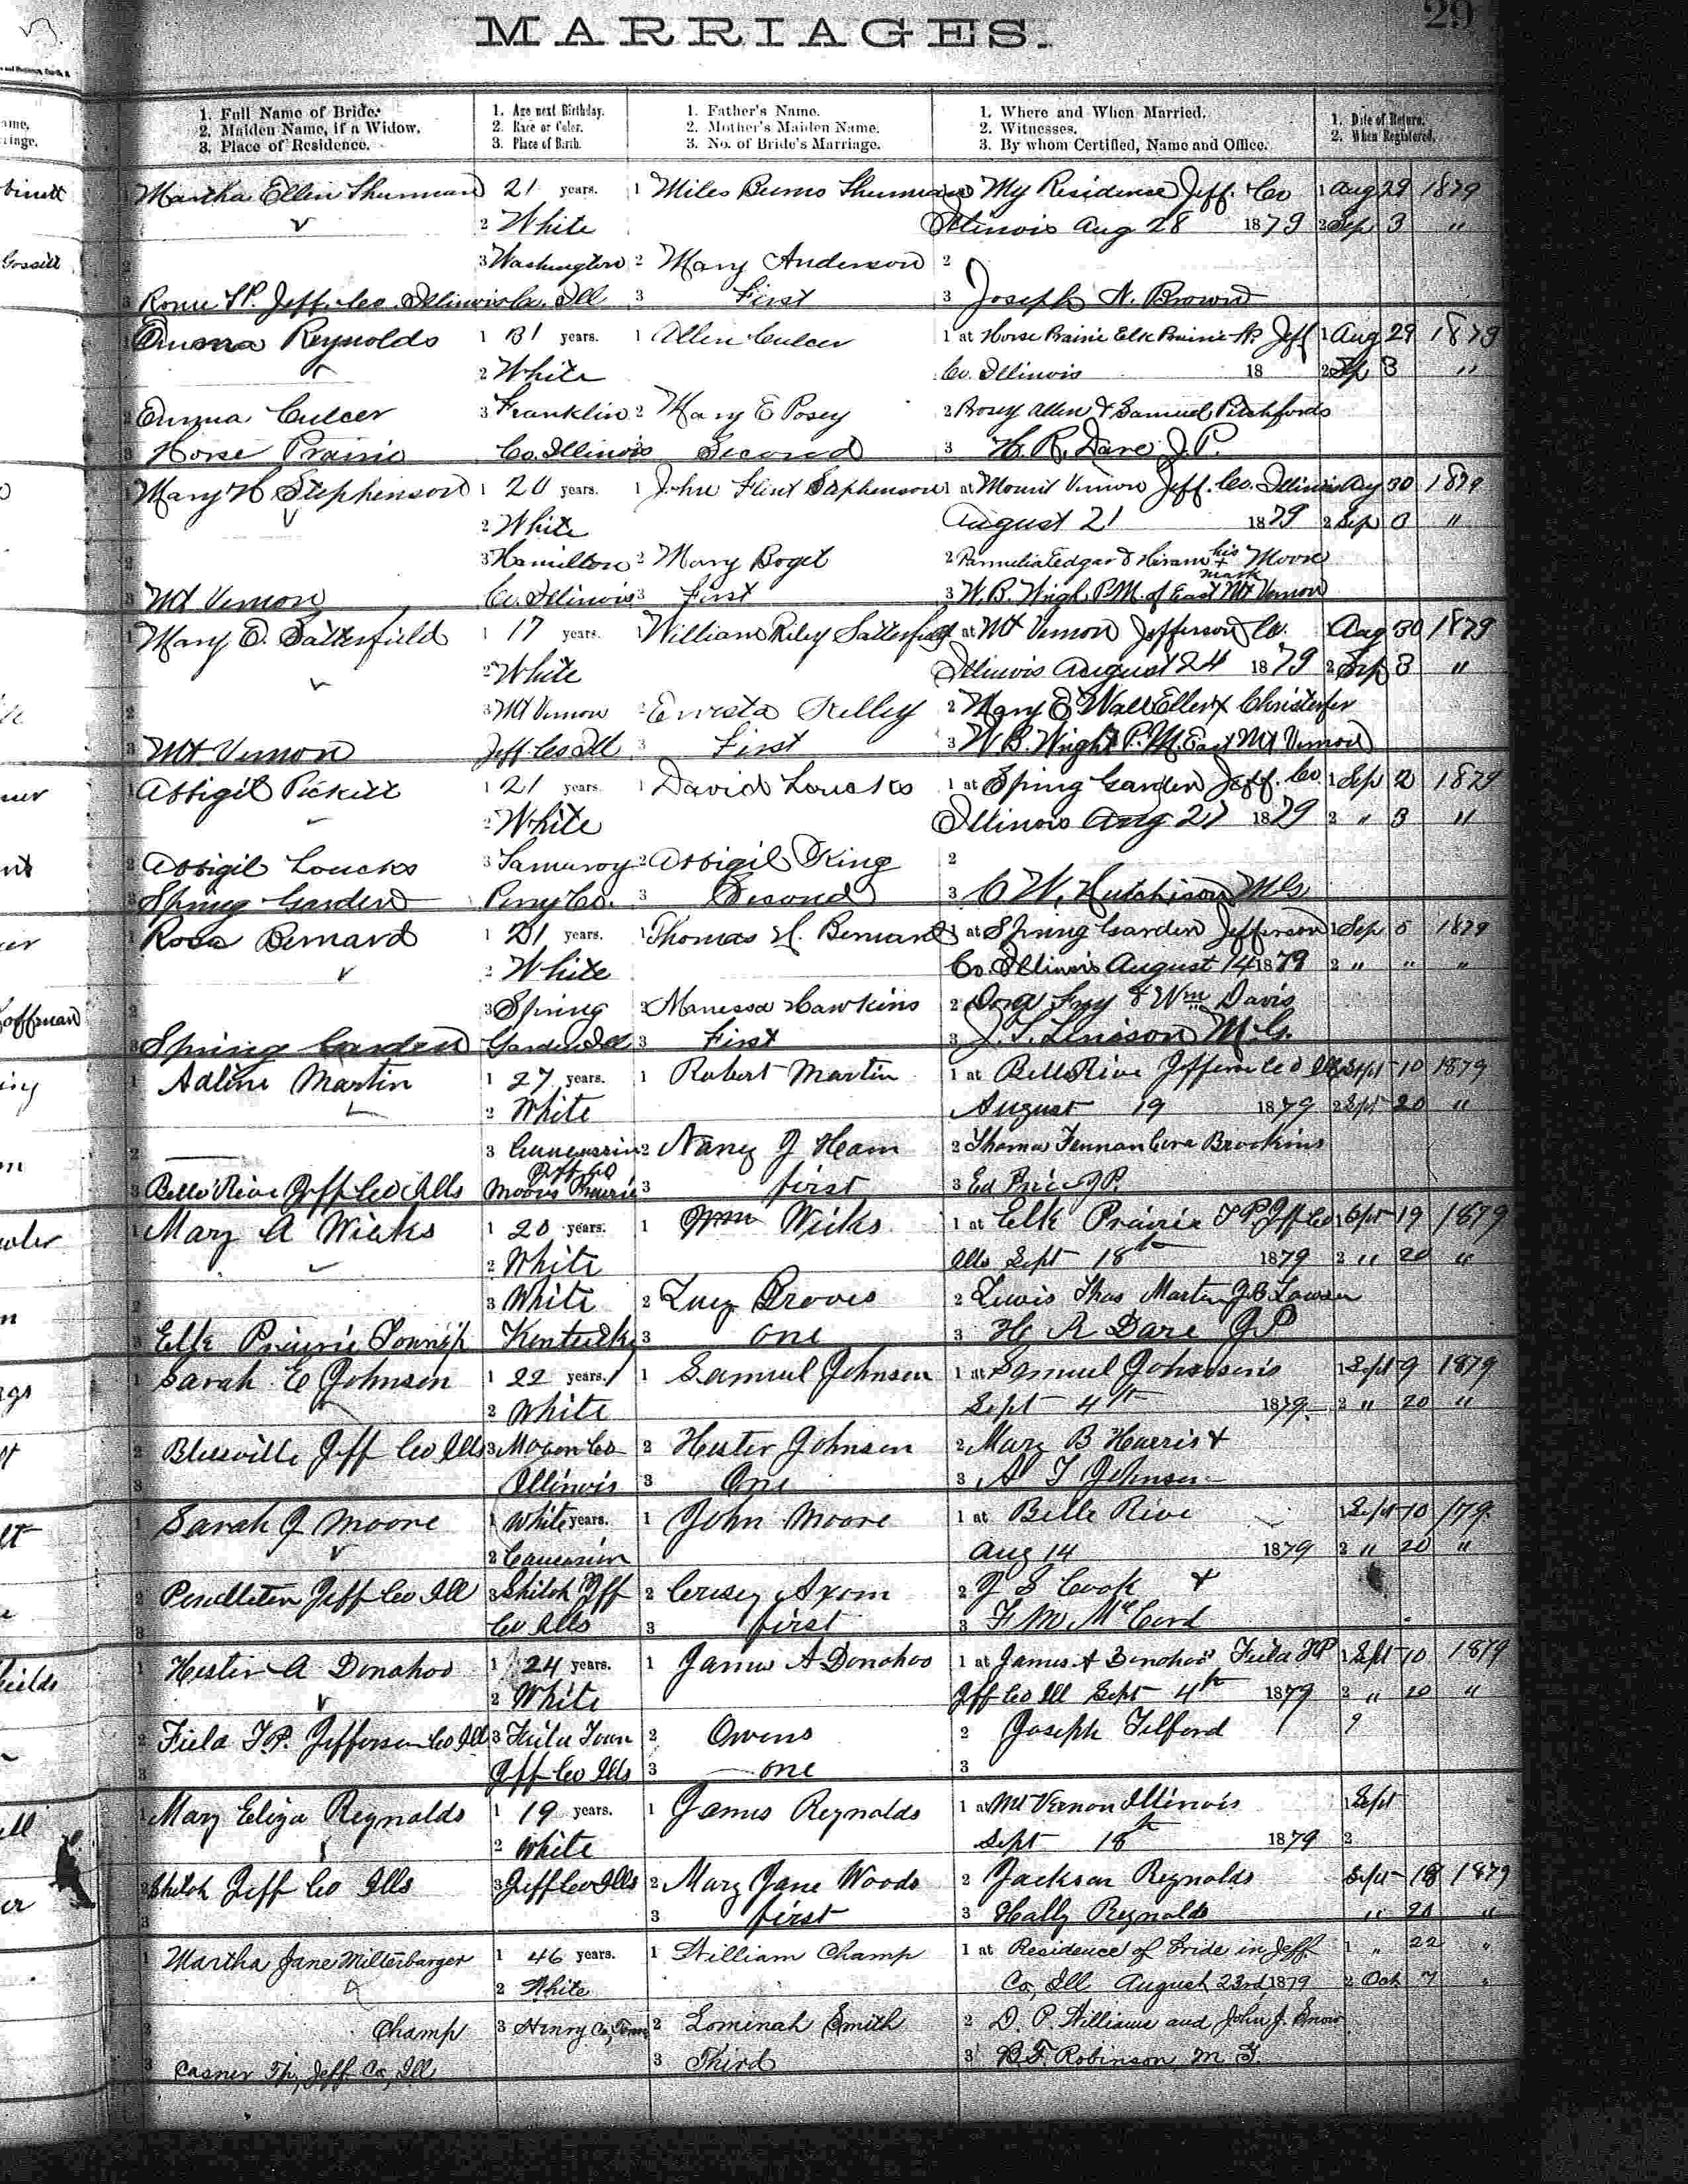 MARRIAGES.
29
1. Full Name of Bride. 1. Age next Birthday. 1. Father's Name. 1. Where and When Married. 1. Date of Return.
2. Maiden Name, if a Widow. 2. Race or Color. 2. Mother's Maiden Name. 2. Witnesses. 2. When Registered.
3. Place of Residence. 3. Place of Birth. 3. No. of Bride's Marriage. 3. By whom Certified, Name and Office.
1 Martha Ellen Shurman 21 years. 1 Miles Burns My Residence Jeff. Co 1 Aug 29 1879
2 White Illinois Aug 28 1879 2 Sep 3 "
2 3 Washington 2 Mary Anderson 2
3 Rome T.P. Jeff. Co. Illinois Co. Ill 3 First 3 Joseph N. Brown
1 Emma Reynolds 1 31 years. 1 Allen Culcer 1 at Horse Prairie Elk Prairie Tp. Jeff 1 Aug 29 1879
2 White Co. Illinois 18 2 Sep 3 "
2 Emma Culcer 3 Franklin 2 Mary E Posey 2 Posey Allen & Samuel Pitchfords
3 Horse Prairie Co. Illinois 3 Second 3 H. R. Dare J.P.
Mary H Stephenson 1 20 years. 1 John Flint Stephenson 1 at Mount Vernon Jeff. Co. Illinois Aug 30 1879
2 White August 21 1879 2 Sep "
2 3 Hamilton 2 Mary Bogel 2 Edgar & Hiram his + mark Moore
3 Mt Vernon Co. Illinois 3 First 3 W. B. Wright P.M. of East Mt Vernon
1 Mary E. Satterfield 1 17 years. 1 William Riley Satterfield at Mt Vernon Jefferson Co. Aug 30 1879
2 White Illinois August 24 1879 2 Sep 3 "
2 3 Mt Vernon 2 Kelley 2 Mary E Wall Ellen X Christerfer
3 Mt. Vernon Jeff. Co Ill 3 First 3 W B. Wright P.M. East Mt Vernon
1 Abbigil Pickett 1 21 years. 1 David Loucks 1 at Spring Garden Jeff. Co. 1 Sep 2 1879
2 White Illinois Aug 27 1879 2 " 3 "
2 Abbigil Loucks 3 Tamuroy 2 Abbigil King 2
3 Spring Garden Perry Co. 3 Second 3 C W. Hutchison M.G.
1 Rosa Bernard 1 21 years. 1 Thomas H. Bernard 1 at Spring Garden Jefferson 1 Sep 5 1879
2 White Co. Illinois August 14 1879 2 " " "
2 3 Spring 2 Manessa Hawkins 2 Dora Fry & Wm Davis
3 Spring Garden Garden Ill 3 First 3 J. T. M.G.
1 Adline Martin 1 27 years. 1 Robert Martin 1 at Belle Rive Jefferson Co Ills Sept 10 1879
2 White August 19 1879 2 Sept 20 "
2 3 Caucassin 2 Nancy J Ham 2 Thomas Brookins
3 Belle Rive Jeff Co Ills Jeff Co Moores Prairie 3 first 3 Ed Price J P
1 Mary A Wicks 1 20 years. 1 Wm Wicks 1 at Elk Prairie T P Jeff Co 1 Sept 19 1879
2 White Ills Sept 18th 1879 2 " 20 "
2 3 White 2 Lucy Groves 2 Lewis Thos Martin J B Lawson
3 Elk Prairie Townsip Kentucky 3 one 3 H R Dare J P
1 Sarah E Johnson 1 22 years. 1 Samuel Johnson 1 at Samuel Johnson's 1 Sept 9 1879
2 White Sept 4th 1879. 2 " 20 "
2 Blissville Jeff Co Ills 3 Macon Co 2 Hester Johnson 2 Mary B Harris &
3 Illinois 3 One 3 A T Johnson
1 Sarah J Moore 1 White years. 1 John Moore 1 at Belle Rive 1 Sept 10 /79.
2 Caucasion Aug 14 1879 2 " 20 "
2 Pendleton Jeff Co Ill 3 Shiloh Jeff 2 Axom 2 J S Cook &
3 Co Ills 3 first 3 F M McCord
1 Hester A Donahoo 1 24 years. 1 James A Donohoo 1 at James A Donohoo Field TP 1 Sept 10 1879
2 White Jeff Co Ill Sept 4th 1879 2 " 20 "
2 Field T.P. Jefferson Co Ill 3 Field Town 2 Owens 2 Joseph Telford 9
3 Jeff Co Ills 3 one 3
1 Mary Eliza Reynolds 1 19 years. 1 James Reynolds 1 at Mt Vernon Illinois 1 Sept
2 White Sept 18th 1879 2
2 Shiloh Jeff Co Ills 3 Jeff Co Ills 2 Mary Jane Woods 2 Jackson Reynolds Sept 18 1879
3 3 first 3 Hally Reynolds " 20 "
1 Martha Jane Milterbarger 1 46 years. 1 William Champ 1 at Residence of Bride in Jeff 1 " 22 "
2 White Co, Ill August 23rd, 1879 2 Oct 7 "
2 Champ 3 Henry Co, Tenn 2 Lominah Smith 2 D. P. Williams and John J. Snow
3 Casner Tp, Jeff Co, Ill 3 Third 3 B F Robinson M. G.